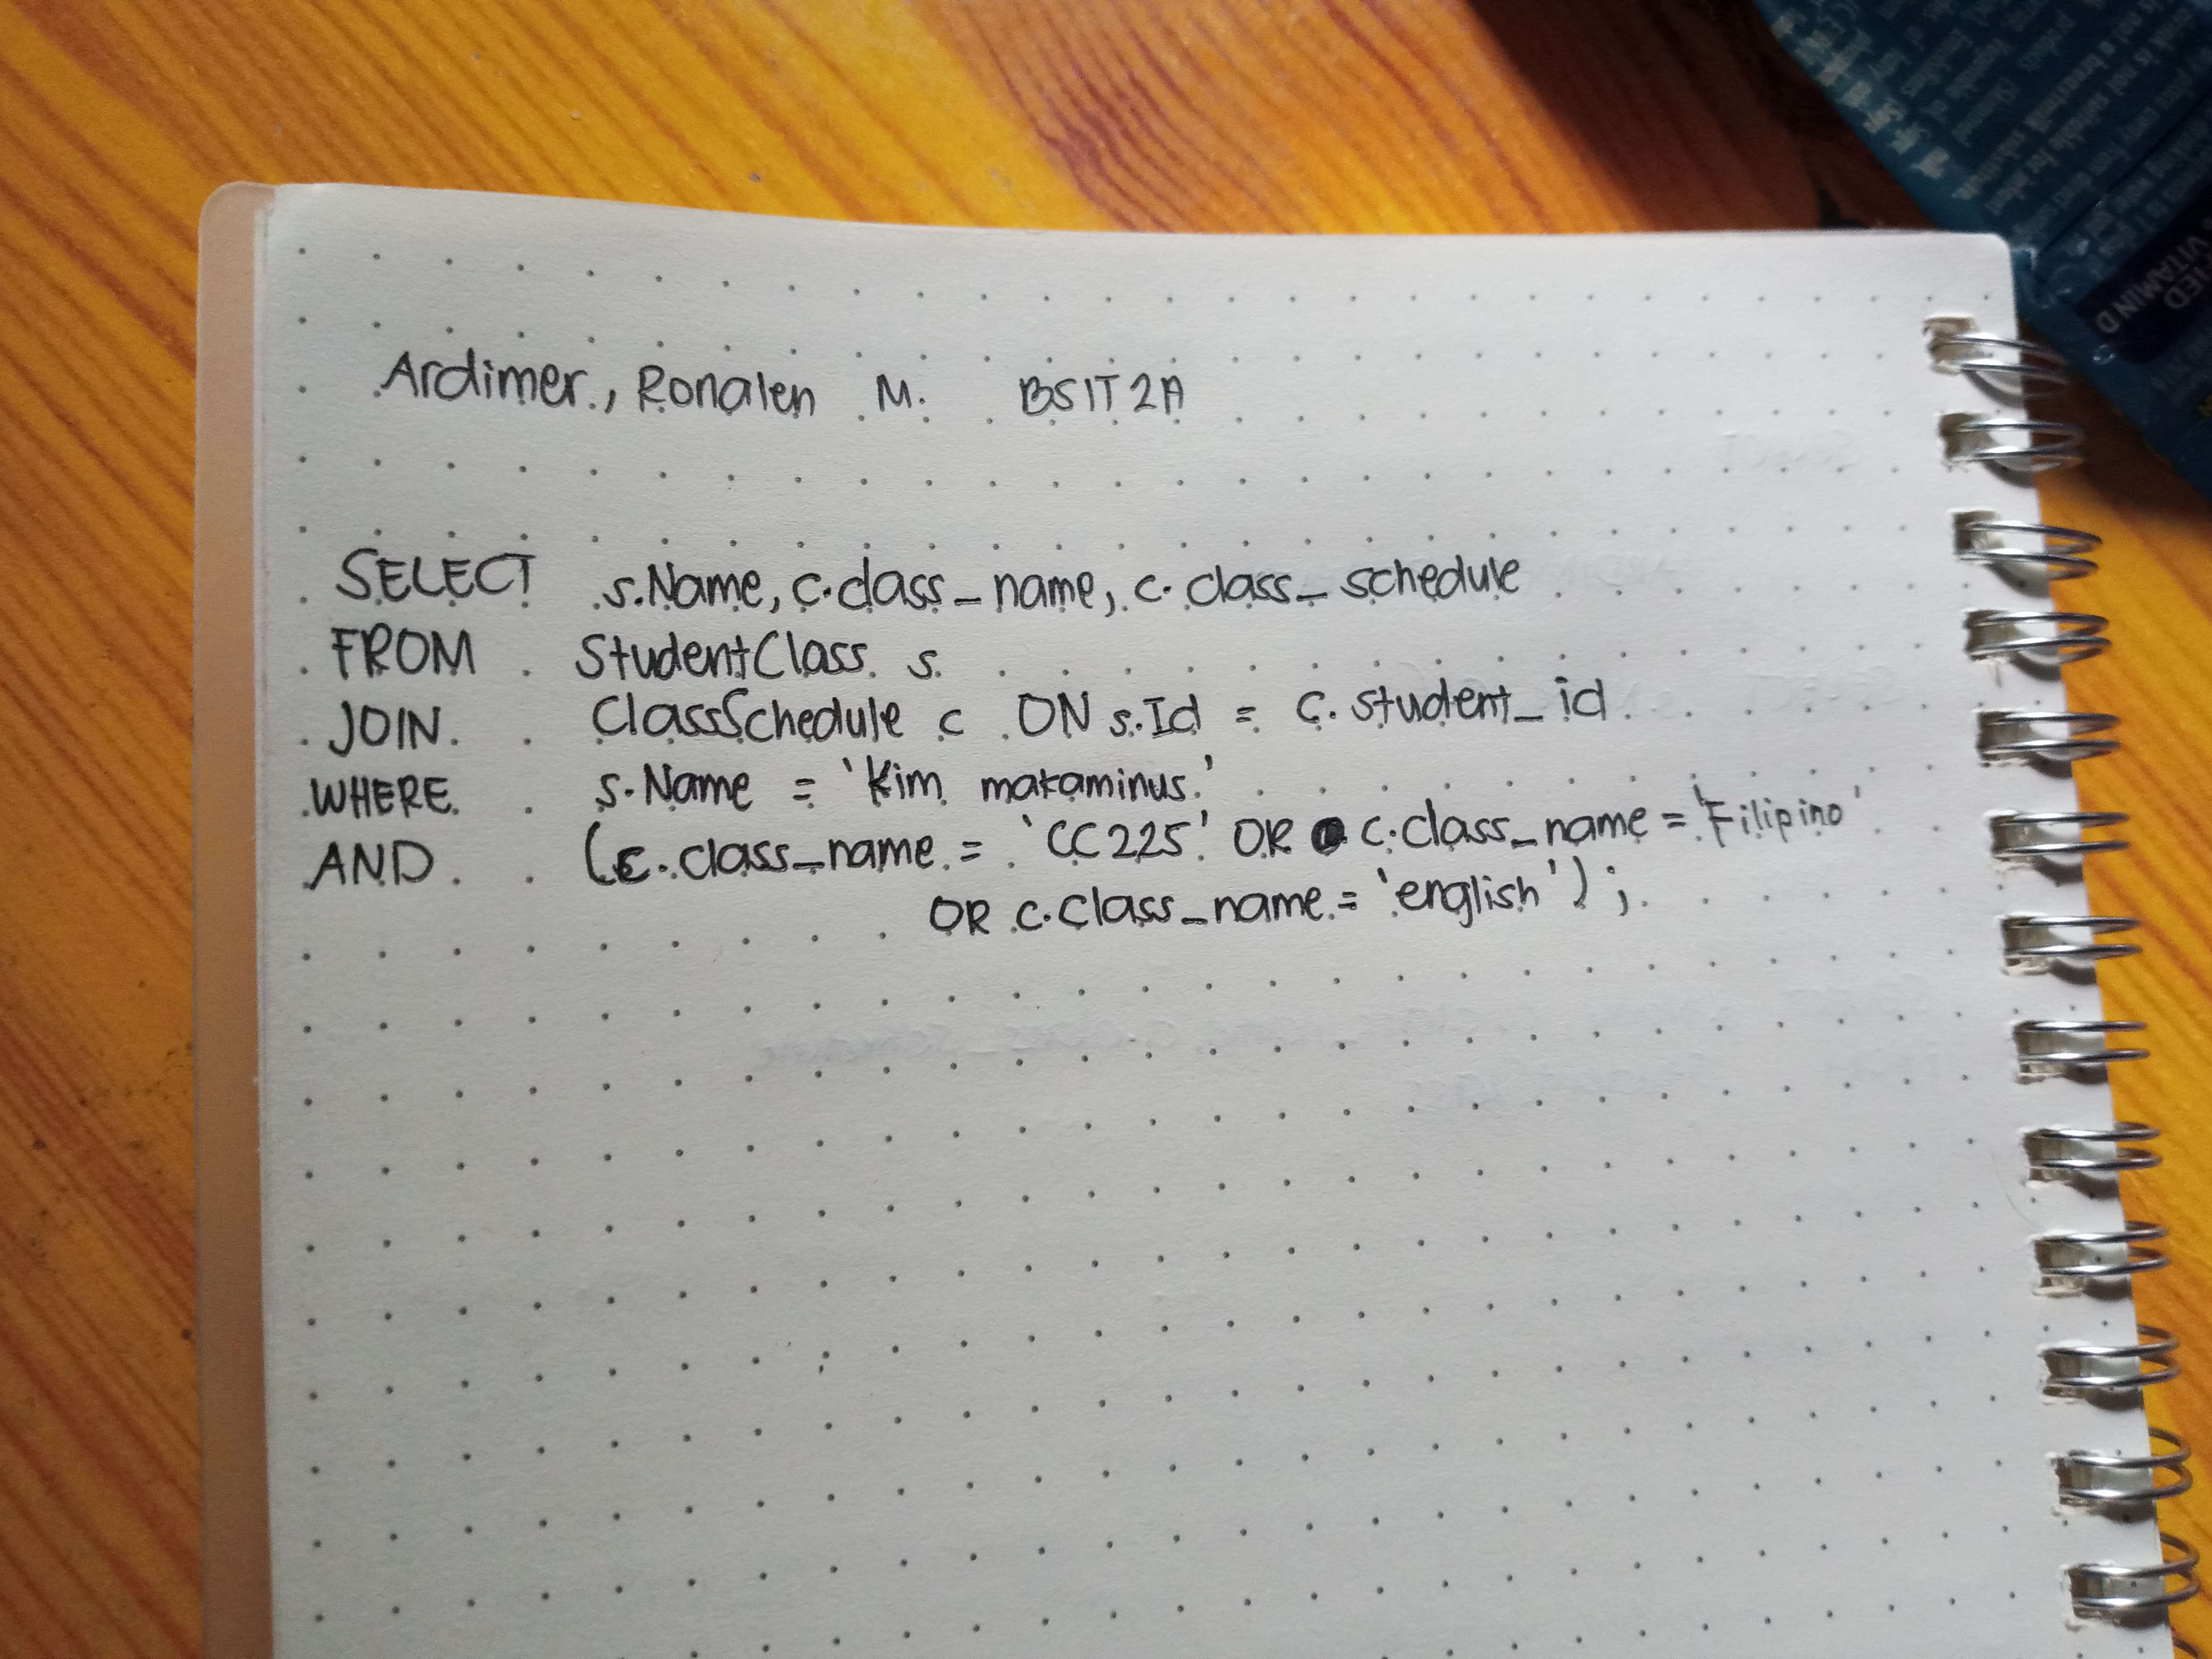 Ardimer, Ronalen M. BSIT 2A
SELECT s.Name, c.class_name, c.class_schedule
FROM StudentClass s
JOIN ClassSchedule c ON s.Id = c.student_id
WHERE s.Name = 'Kim makaminus'
AND (c.class_name = 'CC225' OR c.class_name = 'Filipino'
OR c.class_name = 'english');
VITAMIN D